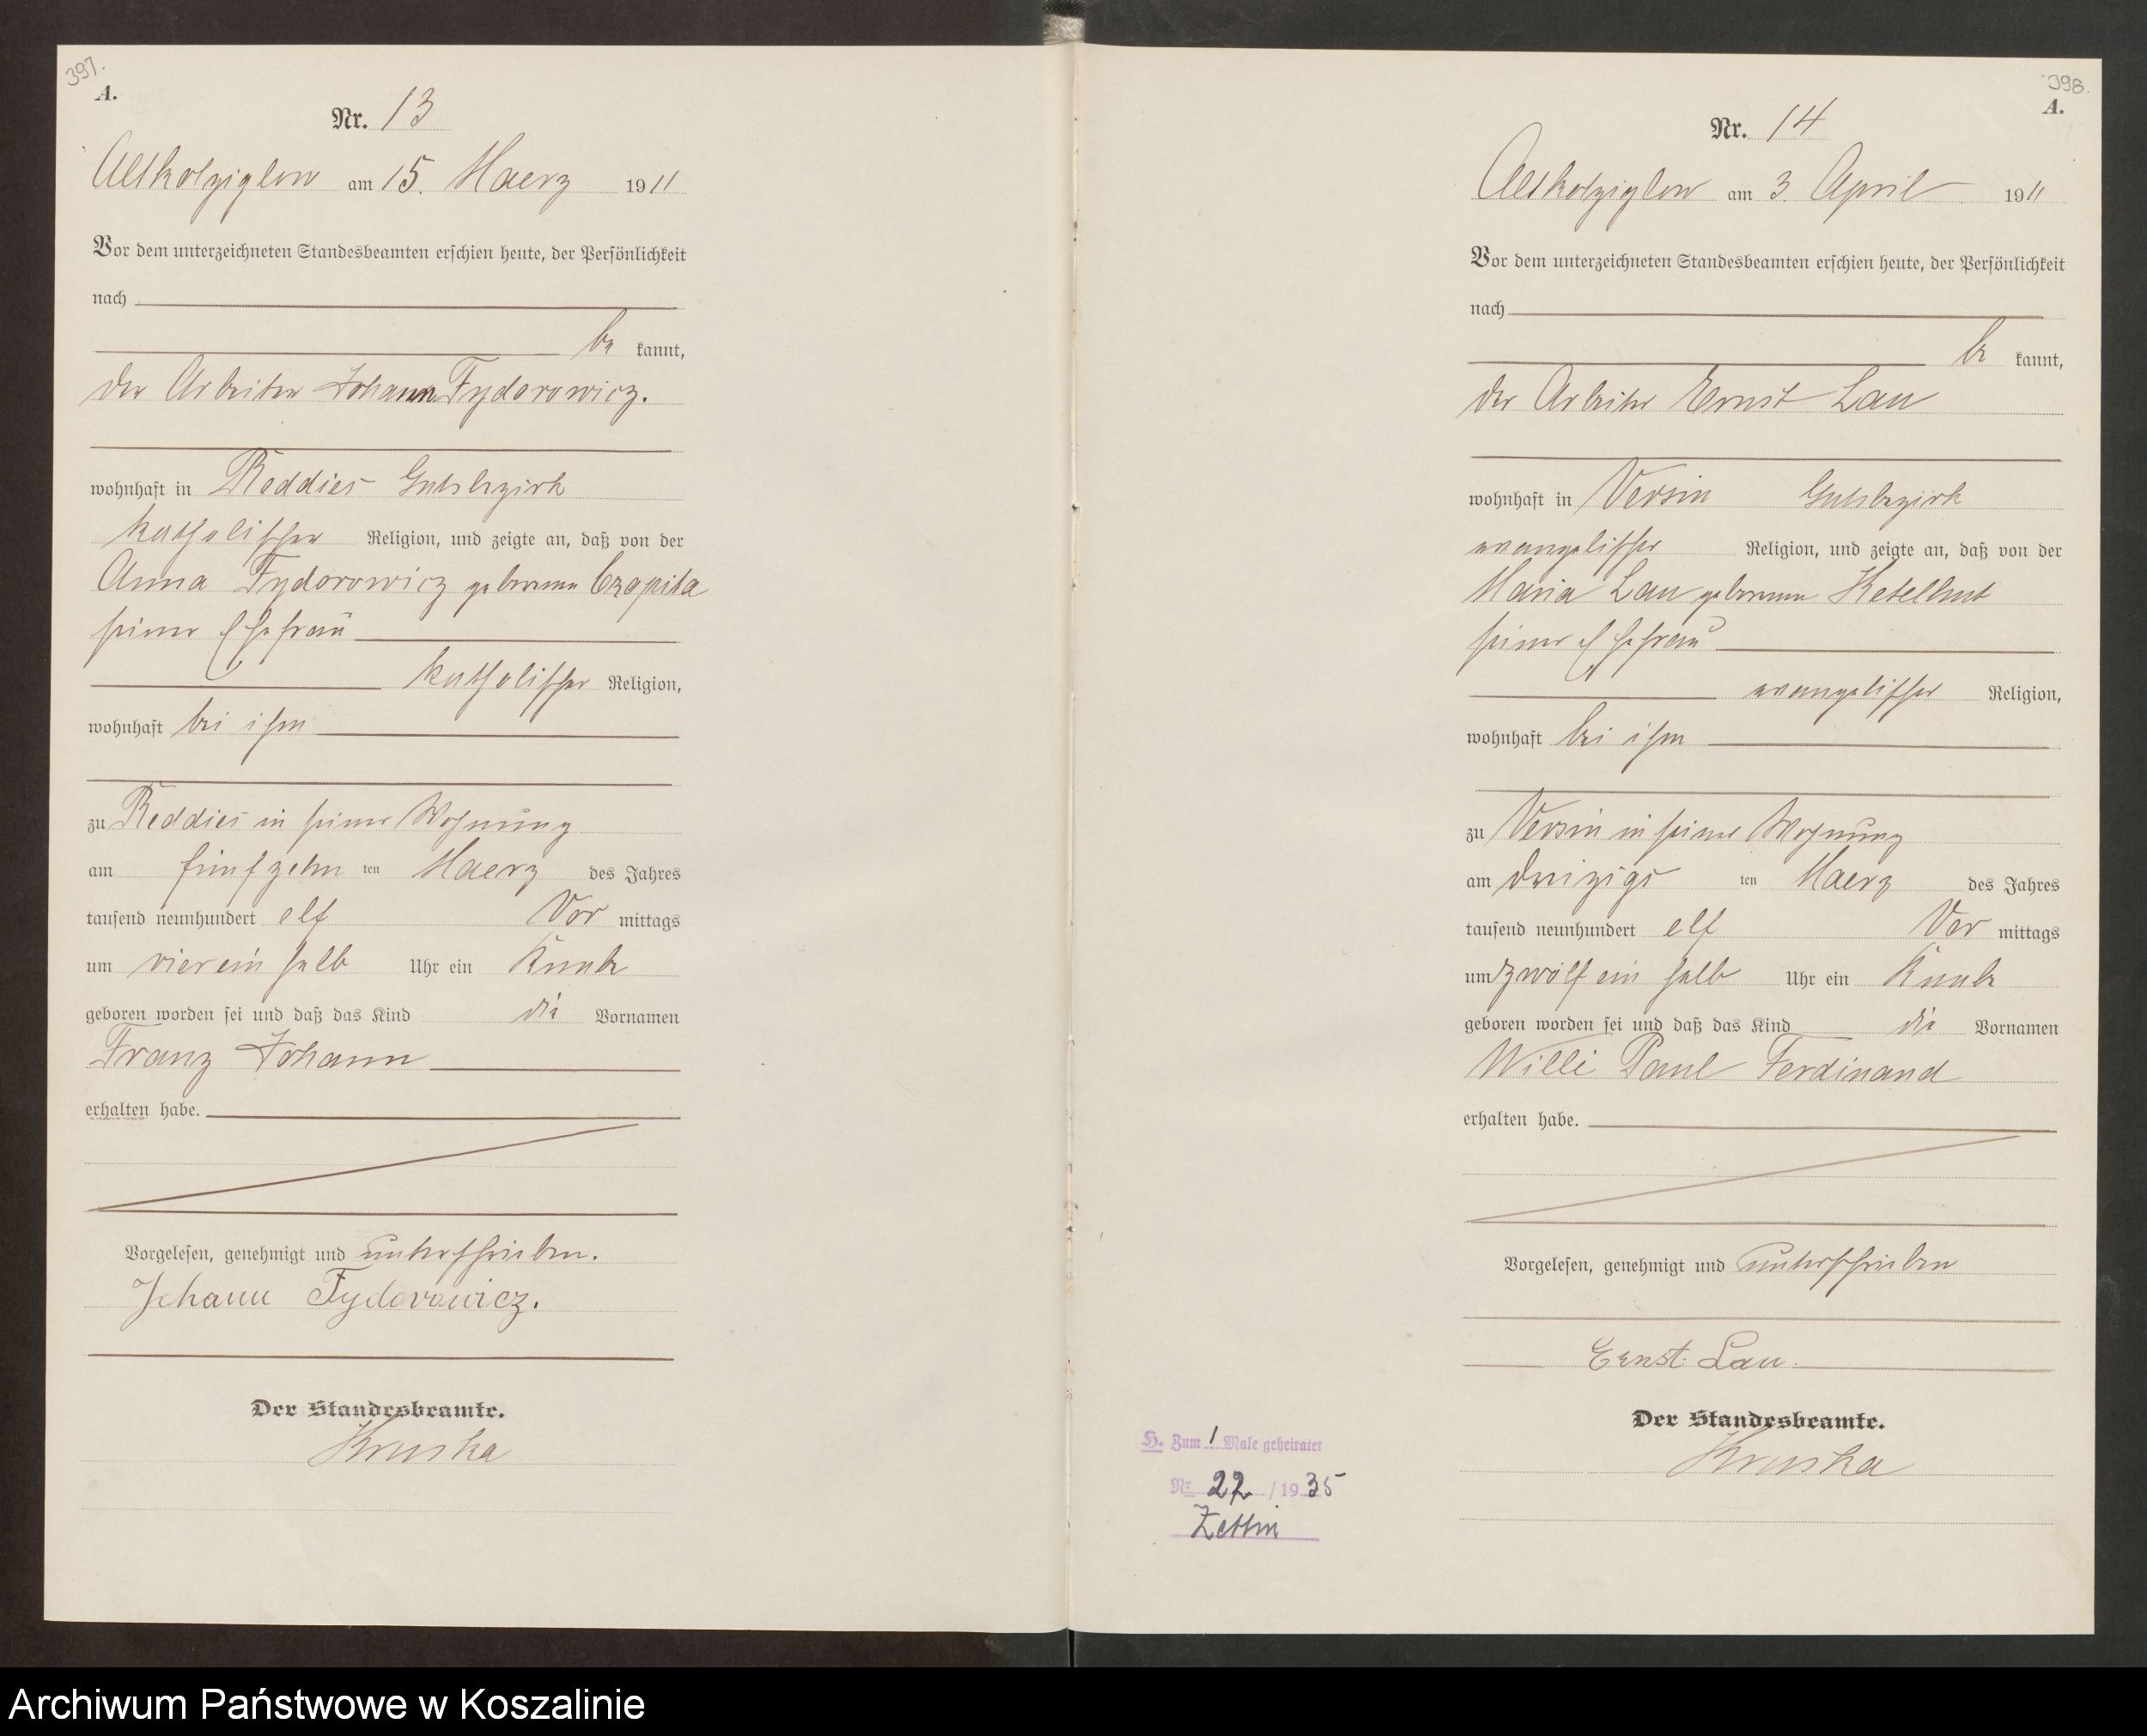 397.
A.
Nr. 13
Altkolziglow am 15. Maerz 1911
Vor dem unterzeichneten Standesbeamten erschien heute, der Persönlichkeit
nach
be kannt,
der Arbeiter Johann Fydorowicz.
wohnhaft in Reddies Gutsbezirk
katholischer Religion, und zeigte an, daß von der
Anna Fydorowicz geborenen Czapita
seiner Ehefrau
katholischer Religion,
wohnhaft bei ihm
zu Reddies in seiner Wohnung
am fünfzehn ten Maerz des Jahres
tausend neunhundert elf Vor mittags
um vierein halb Uhr ein Knabe
geboren worden sei und daß das Kind die Vornamen
Franz Johann
erhalten habe.
Vorgelesen, genehmigt und unterschrieben.
Johann Fydorowicz.
Der Standesbeamte.
Kruska
398.
A.
Nr. 14
Altkolziglow am 3. April 1911
Vor dem unterzeichneten Standesbeamten erschien heute, der Persönlichkeit
nach
be kannt,
der Arbeiter Ernst Lau
wohnhaft in Versin Gutsbezirk
evangelischer Religion, und zeigte an, daß von der
Maria Lau geborenen Ketelhut
seiner Ehefrau
evangelischer Religion,
wohnhaft bei ihm
zu Versin in seiner Wohnung
am dreizigs ten Maerz des Jahres
tausend neunhundert elf Vor mittags
um zwölf ein halb Uhr ein Knabe
geboren worden sei und daß das Kind die Vornamen
Willi Paul Ferdinand
erhalten habe.
Vorgelesen, genehmigt und unterschrieben
Ernst Lau.
Der Standesbeamte.
Kruska
H. Zum 1 Male geheiratet
Nr. 22 / 1935
Zettin
Archiwum Państwowe w Koszalinie